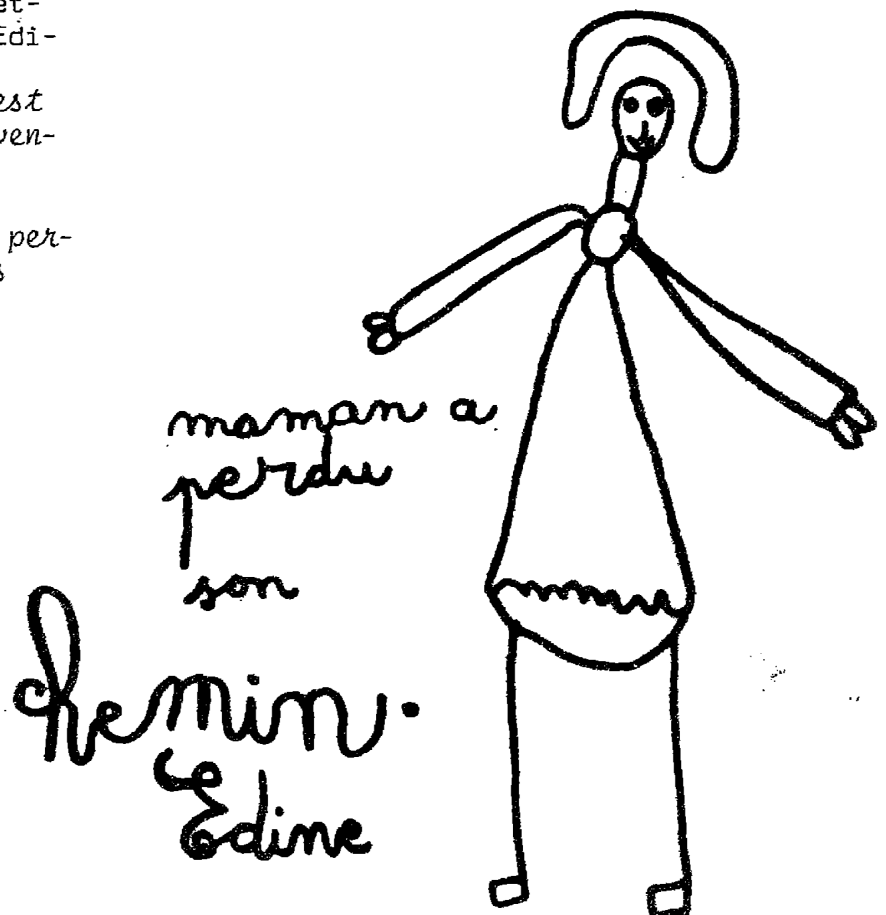 et-
Edi-
est
ven-
per-
s
maman a
perdu
son
chemin.
Edine